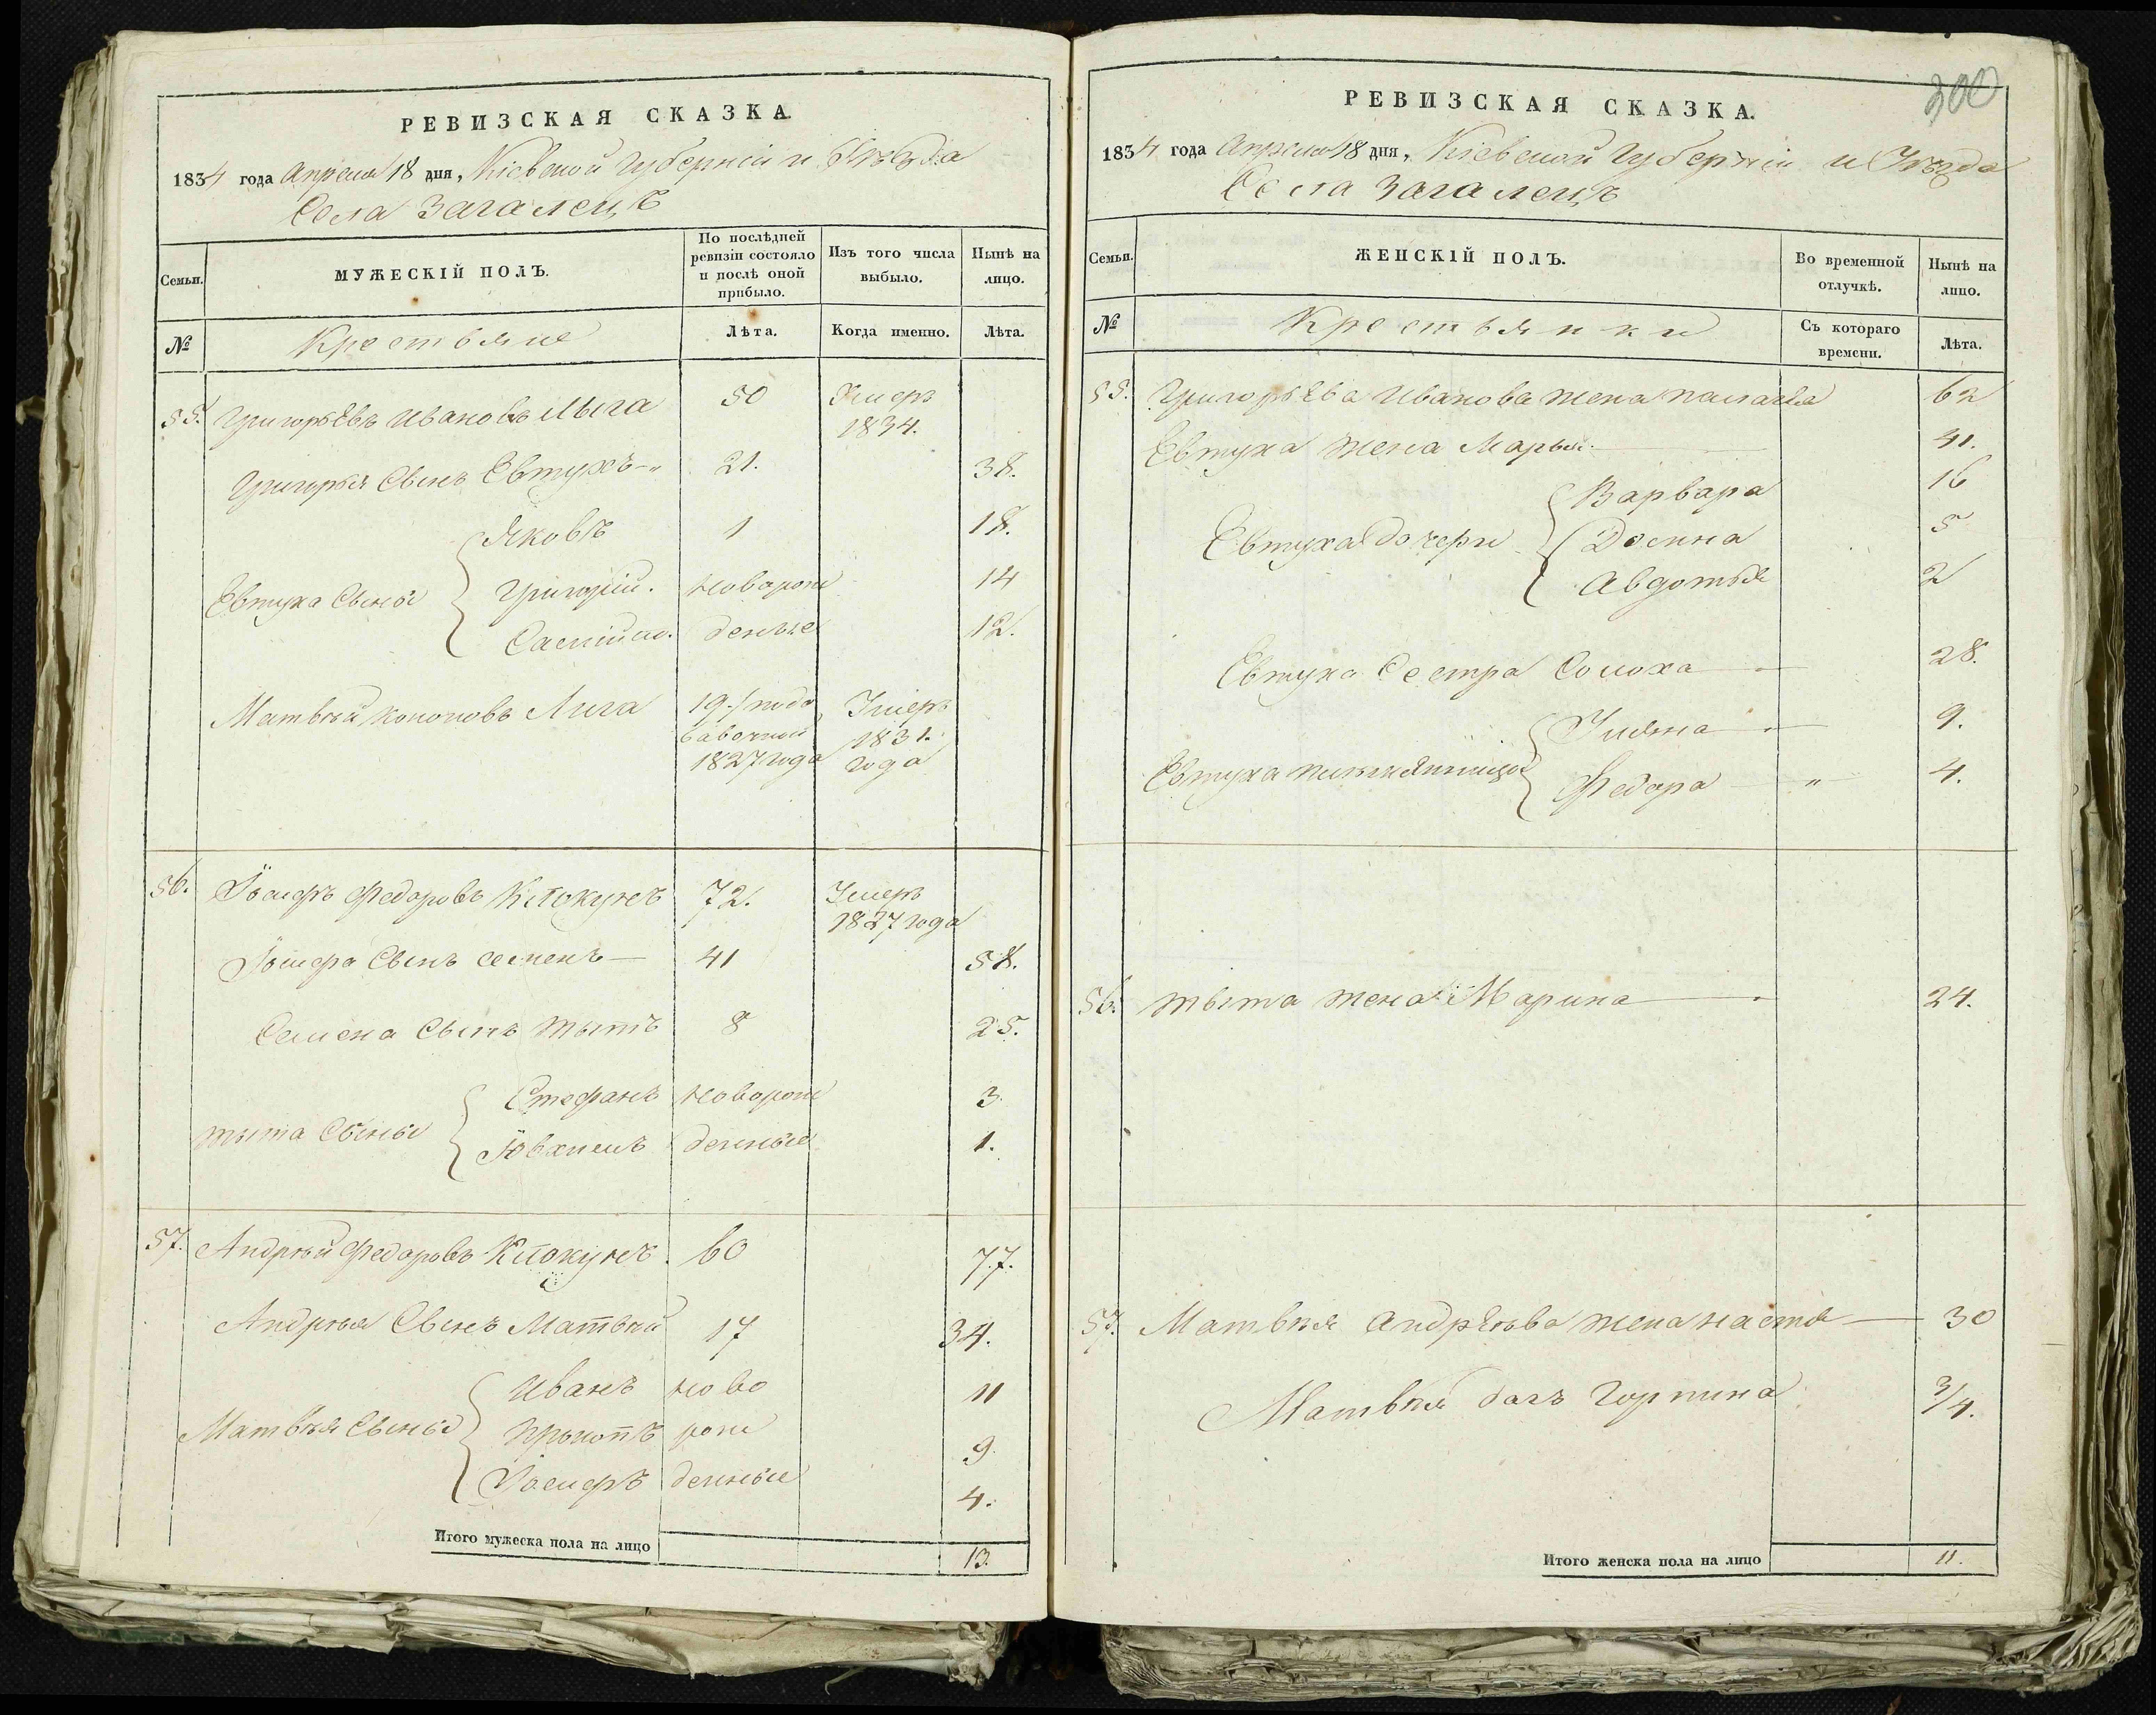 РЕВИЗСКАЯ СКАЗКА.
1834 года Апреля 18 дня, Кіевской Губерніи и Уѣзда
Села Загалецъ
Семьи.
МУЖЕСКІЙ ПОЛЪ.
По послѣдней ревизіи состояло и послѣ оной прибыло.
Изъ того числа выбыло.
Нынѣ на лицо.
№
Крестьяне
Лѣта.
Когда именно.
Лѣта.
55. Григорьевъ Ивановъ Лыга 50 Умеръ 1834.
Григорья Сынъ Евтухъ 21. 38.
Яковъ 1 18.
Евтуха Сыны Григорій. новорож 14
денные 12.
Матвѣй Кононовъ Лига 19 1/ года 1827 года Умеръ 1831. года
56. Іосифъ Федоровъ Клокунъ 72. Умеръ 1827 года
Іосифа Сынъ Семенъ 41 58.
Семена Сынъ Тытъ 8 25.
Стефанъ новорож 3.
Тыта Сыны денные 1.
57. Андрѣй Федоровъ Клокунъ. 60 77.
Андрѣя Сынъ Матвѣй 17 34.
Иванъ ново 11
Матвѣя Сыны рож 9.
Іосифъ денные 4.
Итого мужеска пола на лицо 13.
300
РЕВИЗСКАЯ СКАЗКА.
1834 года Апреля 18 дня, Кіевской Губерніи и Уѣзда
Села Загалецъ
Семьи.
ЖЕНСКІЙ ПОЛЪ.
Во временной отлучкѣ.
Нынѣ на лицо.
№
Крестьянки
Съ котораго времени.
Лѣта.
55. Григорьева Иванова жена 62
Евтуха жена Марья 41.
Варвара 16
Евтуха дочери Домна 5
Авдотья 2
Евтуха Сестра Солоха 28.
Уляна 9.
Евтуха племянницы Федора 4.
56. Тыта жена Марина 24.
57. Матвѣя Андрѣева жена Настя 30
Матвѣя дочь Горпина 3/4.
Итого женска пола на лицо 11.